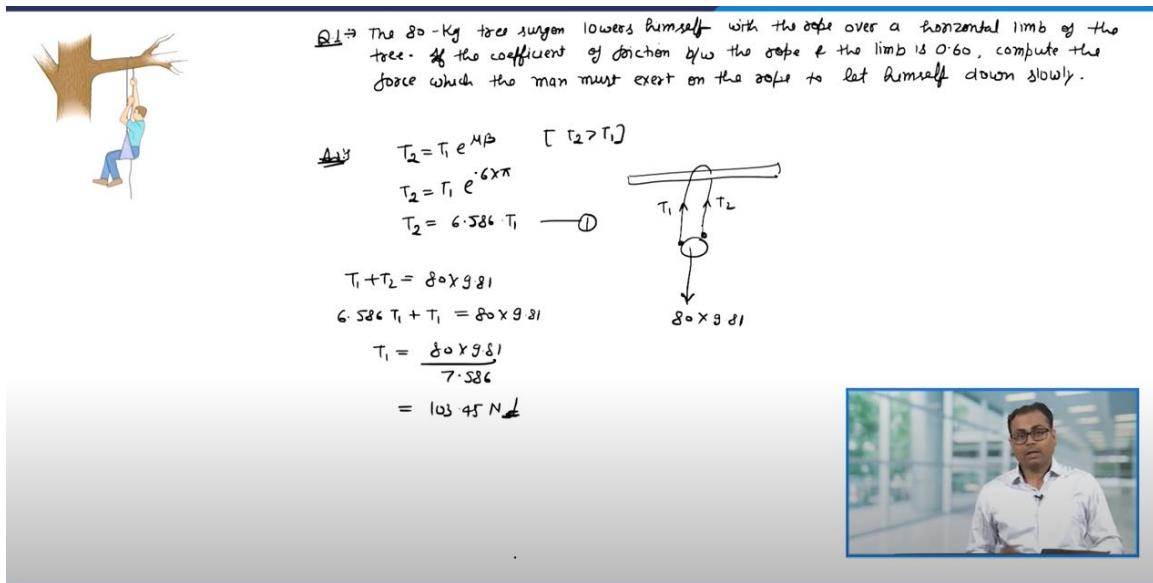 Q1⇒ The 80-Kg tree surgeon lowers himself with the rope over a horizontal limb of the
tree. If the coefficient of friction b/w the rope & the limb is 0.60, compute the
force which the man must exert on the rope to let himself down slowly.
Ans
T₂ = T₁ e^μβ [T₂ > T₁]
T₂ = T₁ e^.6×π
T₂ = 6.586 T₁ — ①
T₁ T₂
T₁ + T₂ = 80 × 9.81
6.586 T₁ + T₁ = 80 × 9.81
80 × 9.81
T₁ = 80 × 9.81 / 7.586
= 103.45 N